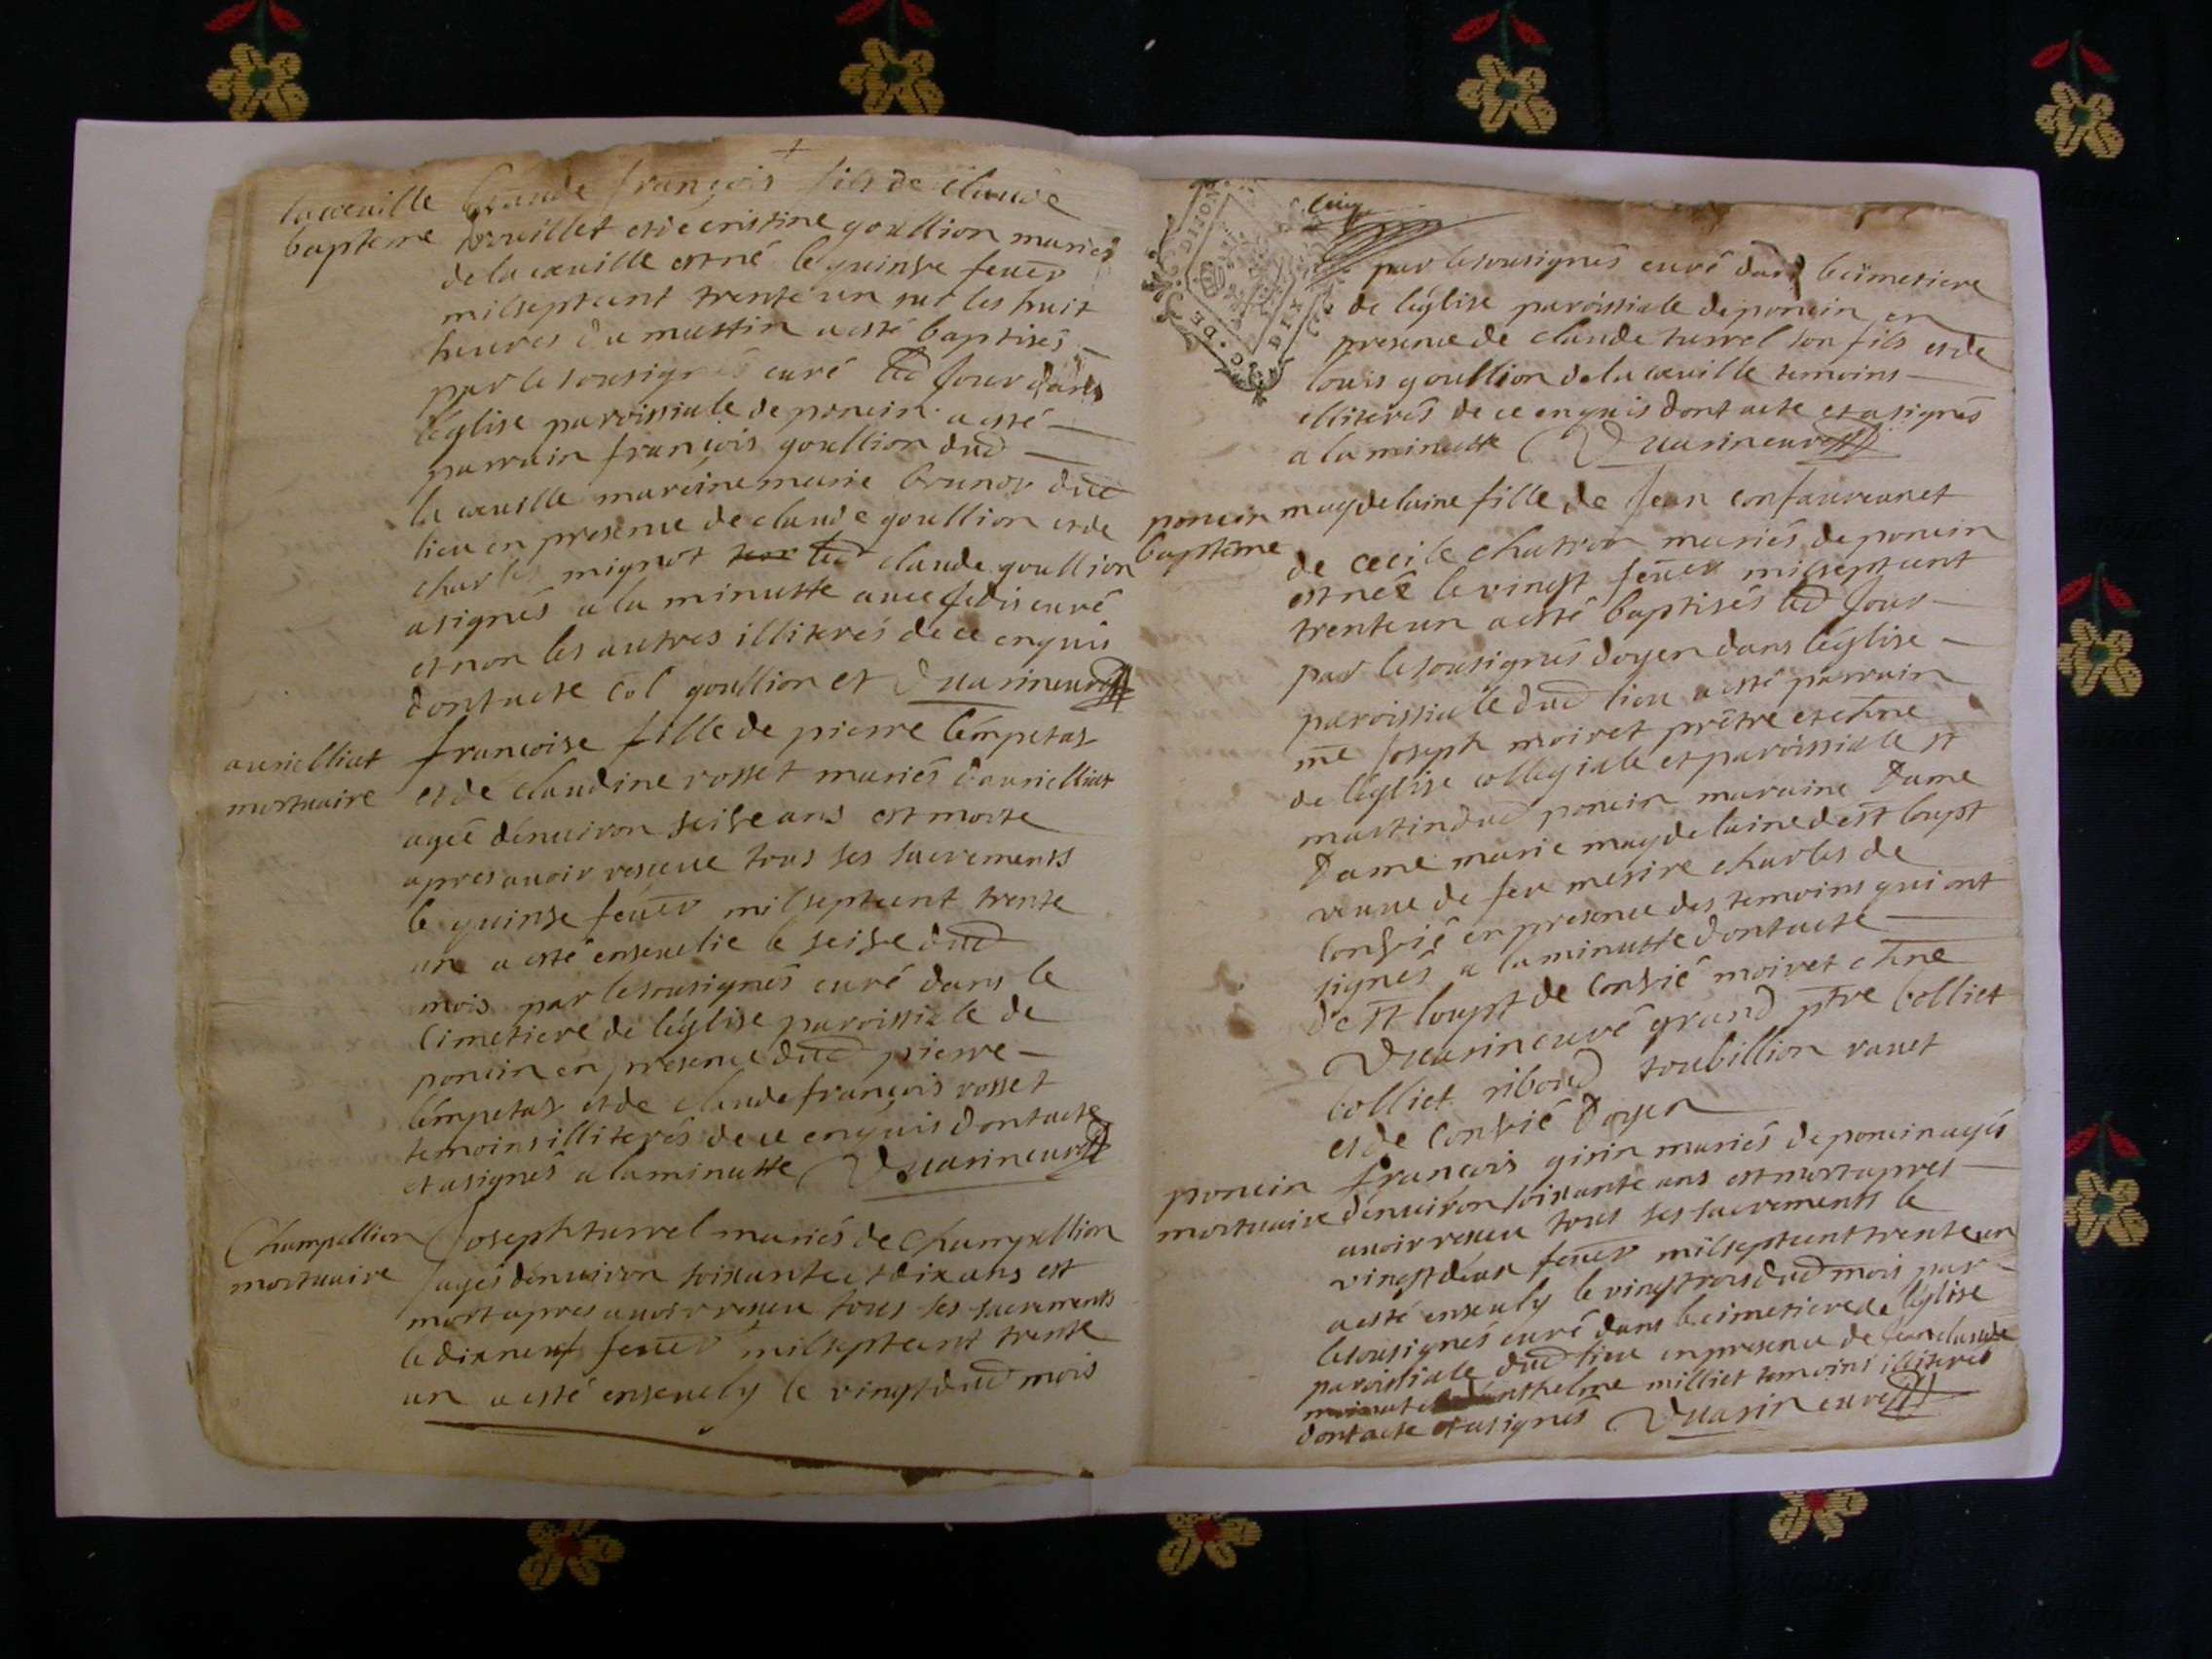 la cœuille
bapteme
Claude françois fils de Claude
et de cristine goullion mariés
de la cœuille est né le quinse feuer
milseptcent trente un sur les huit
heures du mattin a esté baptisés
par le sousignés curé led jour dans
l'église paroissiale de poncin a esté
parrain françois goullion dud
la cœuille maraine marie brunor dud
lieu en presence de claude goullion et de
charles mignot led claude goullion
a signés a la minutte auec jedis curé
et non les autres illiterés de ce enquis
dont acte Col goullion et Duarin curé
aurielliat
mortuaire
francoise fille de pierre lémpetas
et de claudine rosset mariés daurielliat
ageé dénuiron seise ans est morte
apres auoir resceue tous ses sacrements
le quinse feuer milseptcent trente
un a esté enseuelie le seise dud
mois par le sousignés curé dans le
cimetiere de léglise paroissiale de
poncin en presence dud pierre
lémpetas et de claude françois rosset
temoins illiterés de ce enquis dont acte
et a signés a la minutte Duarin curé
Champellion
mortuaire
Joseph turrel mariés de Champellion
agés dénuiron soixante et dix ans est
mort apres auoir resceu tous ses sacrements
le dixneuf feuer milseptcent trente
un a esté enseuely le vingt dud mois
DIJON
DIX
DE
cinq
par le sousignés curé dans le cimetiere
de léglise paroissiale de poncin en
presence de claude turrel son fils et de
louis goullion de la cœuille temoins
illiterés de ce enquis dont acte et a signés
a la minutte Duarin curé
poncin
baptéme
magdelaine fille de Jean confaureanet
de cecile chatron mariés de poncin
est néé le vingt feuer milseptcent
trente un a esté baptisés led jour
par le sousignés doyen dans léglise
paroissialle dud lieu a esté parrain
me Joseph moiret prêtre et chne
de léglise collegiale et paroissialle st
martin dud poncin maraine Dame
Dame marie magdelaine de st loupt
veuue de feu mesire charles de
Consié en presence des temoins qui ont
signés a la minutte dont acte
De st loupt de Consié moiret chne
Duarin curé grand ptre Colliet
colliet riboud toubillion rauet
et de Consié Doyen
poncin
mortuaire
francois girin mariés de poncin agés
dénuiron soixante ans est mort apres
auoir resceu tous ses sacrements le
vingt déux feuer milseptcent trente un
a esté enseuely le vingt trois dud mois par
le sousignés curé dans le cimetiere de léglise
paroissiale dud lieu en presence de Jean claude
anthelme milliet temoins illiterés
dont acte et a signés Duarin curé